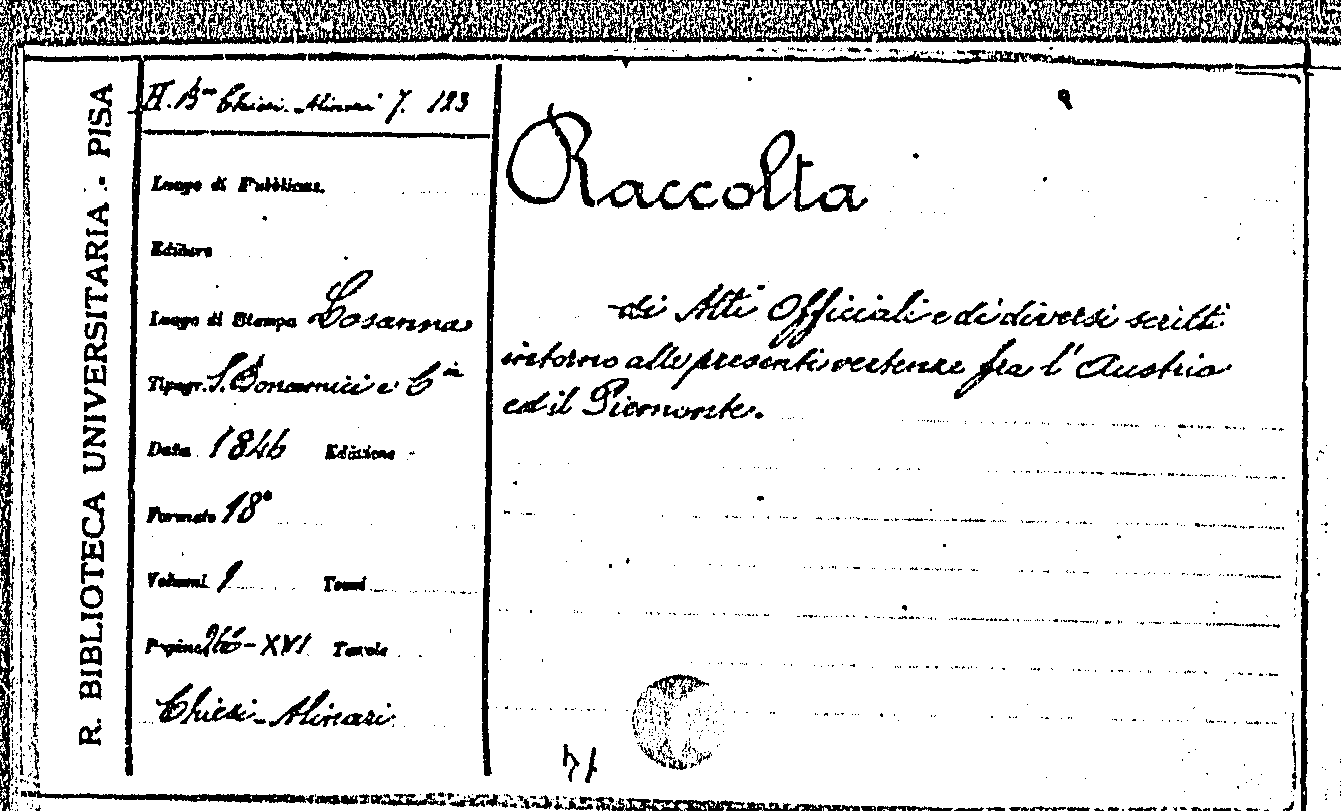 R. BIBLIOTECA UNIVERSITARIA - PISA
H. Bⁿ Chiesi-Alinari 7. 123
Luogo di Pubblicaz.
Editore
Luogo di Stampa Losanna
Tipogr. S. Bonamici e Cia
Data 1846 Edizione
Formato 18°
Volumi 1 Tomi
Pagine - XVI Tavole
Chiesi-Alinari
Raccolta
di Atti Officiali e di diversi scritti
intorno alle presenti vertenze fra l'Austria
ed il Piemonte.